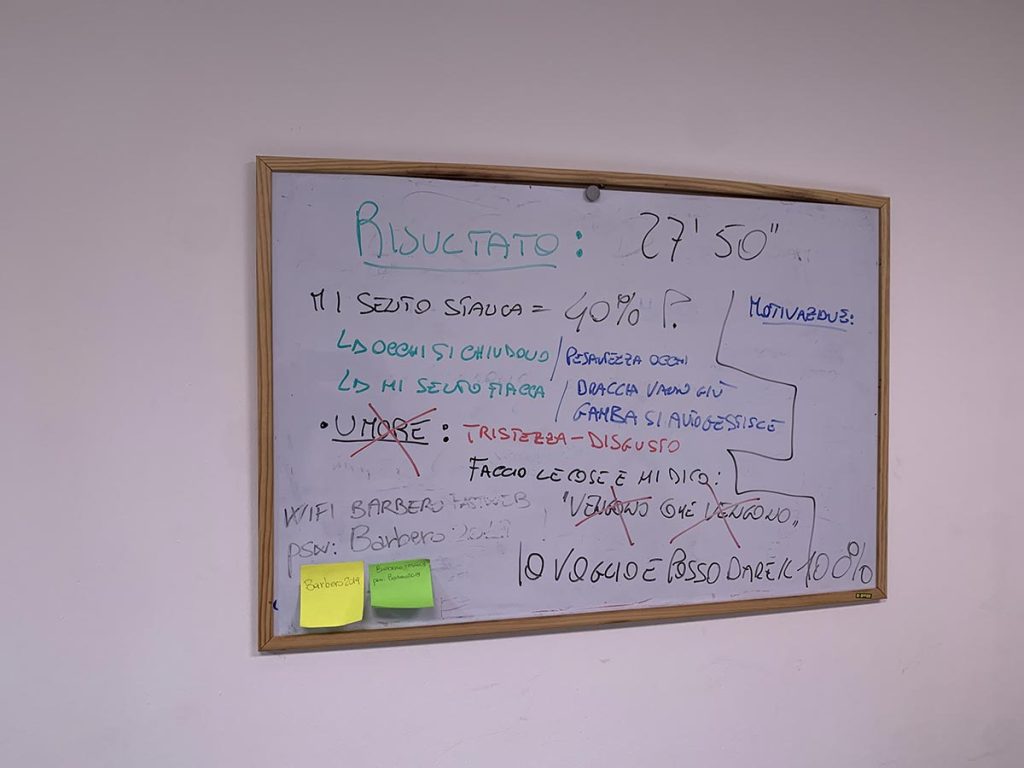 RISULTATO: 27' 50"
MI SENTO STANCA = 40% ?
MOTIVAZIONE:
OCCHI SI CHIUDONO / PESANTEZZA OCCHI
MI SENTO FIACCA / BRACCIA VANNO GIÙ
GAMBA SI AUTOGESSISCE
• UMORE: TRISTEZZA - DISGUSTO
FACCIO LE COSE E MI DICO:
"VENGONO COME VENGONO"
WIFI BARBERO FASTWEB
psw: Barbero 2019
IO VOGLIO E POSSO DARE IL 100%
Barbero2019